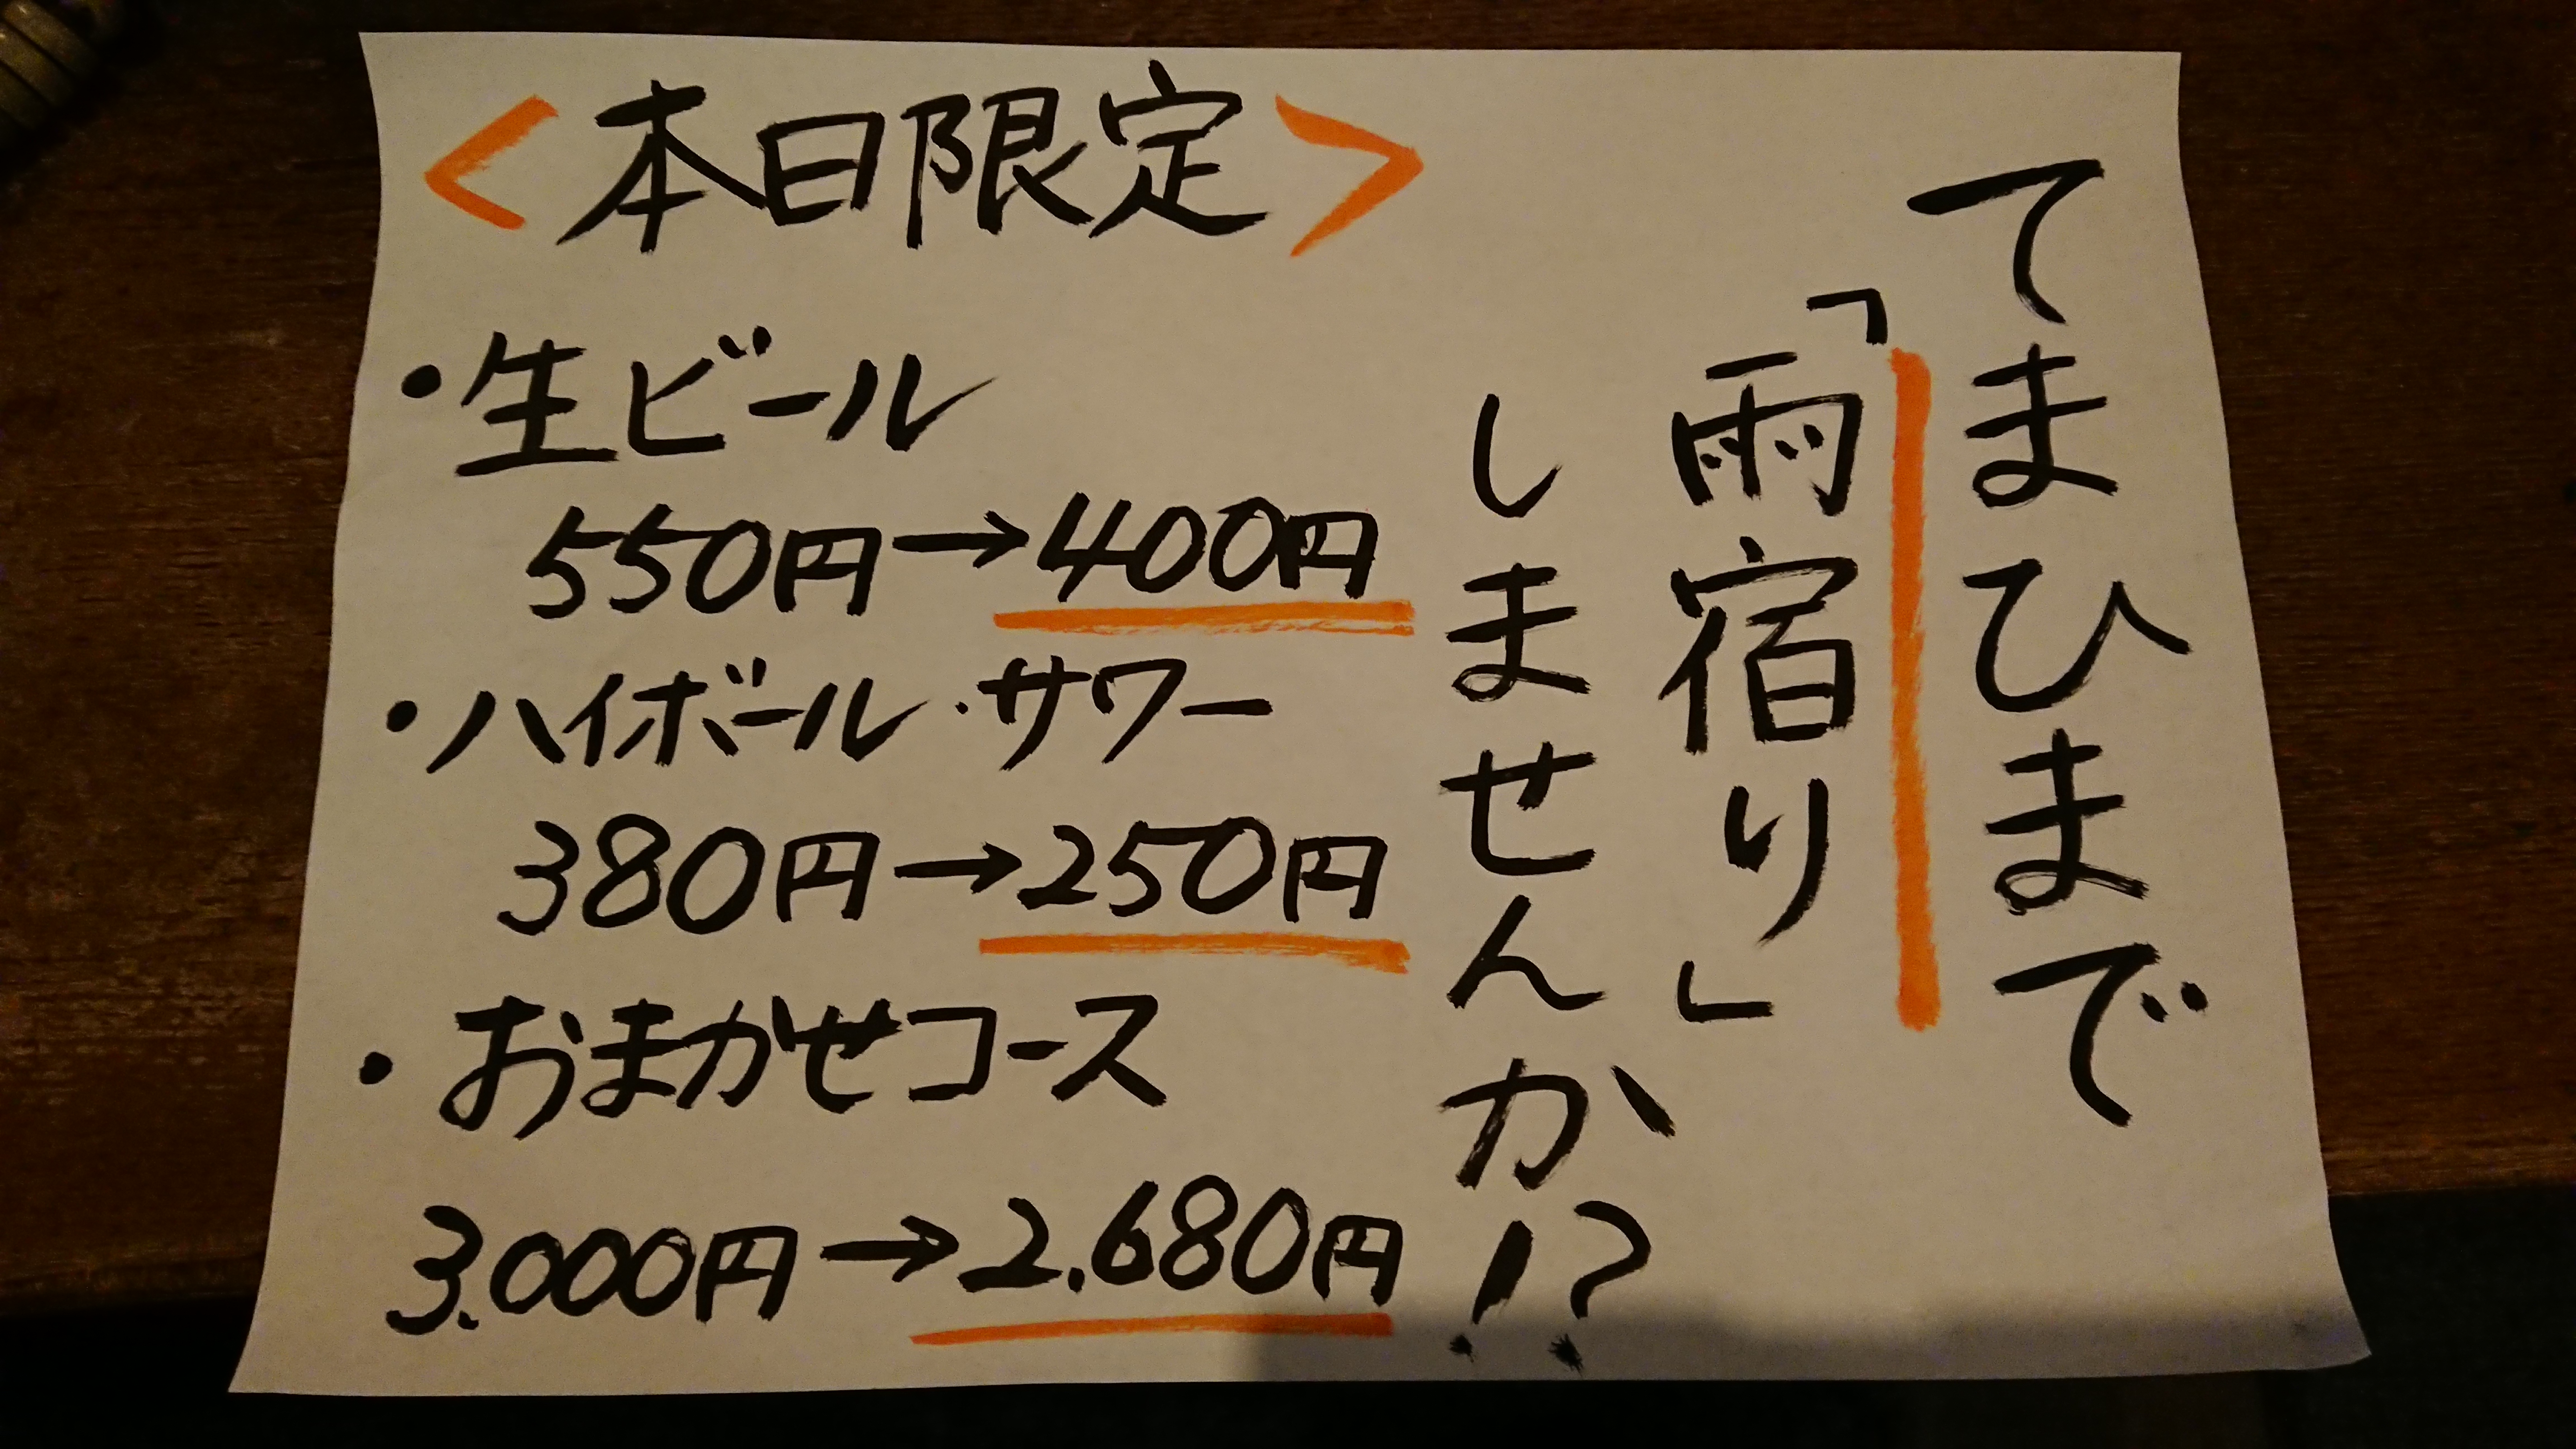 てまひまで
「雨宿り」
しませんか!?
<本日限定>
・生ビール
550円→400円
・ハイボール・サワー
380円→250円
・おまかせコース
3.000円→2.680円